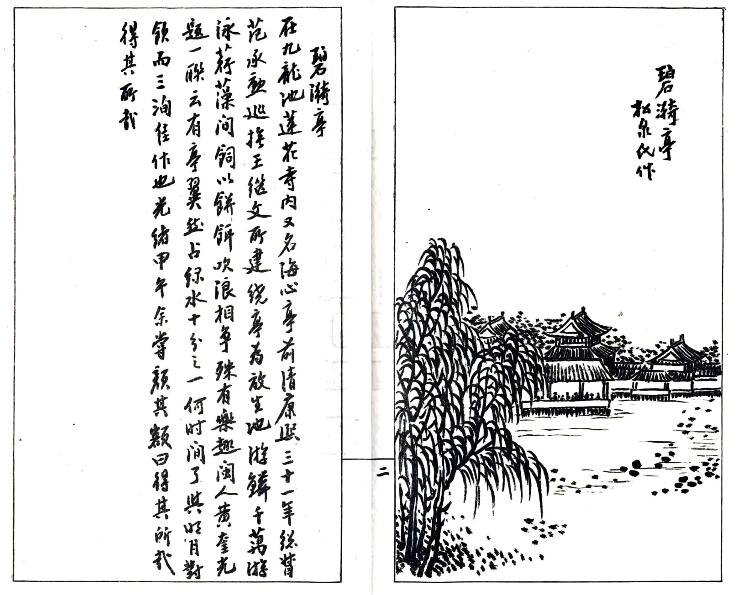 碧漪亭
松泉氏作
碧漪亭
在九龍池蓮花寺内又名海心亭前清康熙三十一年總督
范承勳巡撫王继文所建绕亭為放生池游鱗千萬游
泳荇藻间飼以餅餌吹浪相争殊有樂趣闽人黄奎光
题一聯云有亭翼然占绿水十分之一何时间了與明月對
飲而三洵佳作也光绪甲午余嘗颜其额曰得其所哉
得其所哉
二